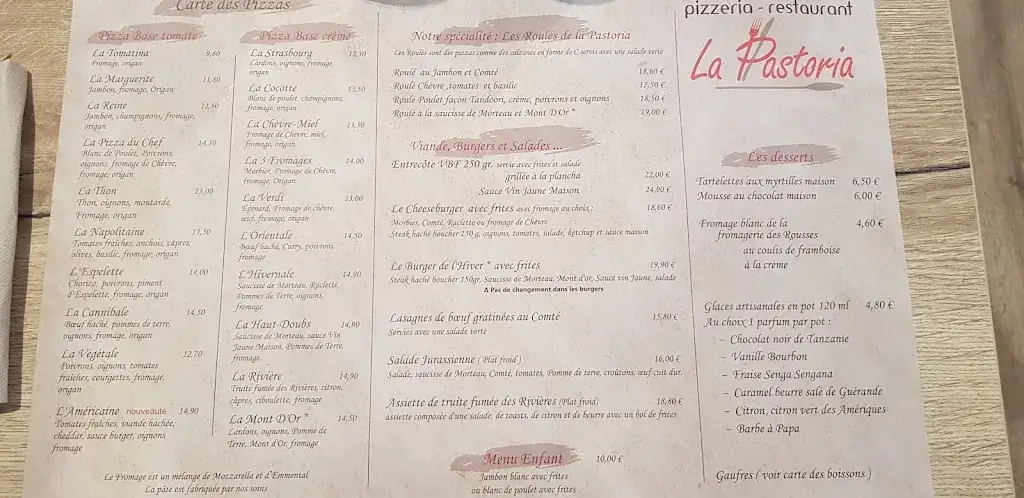 Carte des Pizzas
Pizza Base tomate
La Tomatina 9,80
Fromage, origan
La Marguerite 11,80
Jambon, fromage, Origan
La Reine 12,50
Jambon, champignons, fromage,
origan
La Pizza du Chef 14,50
Blanc de Poulet, Poivrons,
oignons, fromage de Chèvre,
fromage, origan
La Thon 13,00
Thon, oignons, moutarde,
Fromage, origan
La Napolitaine 13,50
Tomates fraîches, anchois, câpres,
olives, basilic, fromage, origan
L'Espelette 14,00
Chorizo, poivrons, piment
d'Espelette, fromage, origan
La Cannibale 14,50
Bœuf haché, pommes de terre,
oignons, fromage, origan
La Végétale 12,70
Poivrons, oignons, tomates
fraîches, courgettes, fromage,
origan
L'Américaine nouveauté 14,90
Tomates fraîches, viande hachée,
cheddar, sauce burger, oignons
fromage
Pizza Base crème
La Strasbourg 12,50
Lardons, oignons, fromage,
origan
La Cocotte 13,50
Blanc de poulet, champignons,
fromage, origan
La Chèvre-Miel 13,50
Fromage de Chèvre, miel,
fromage, origan
La 3 Fromages 14,00
Morbier, Fromage de Chèvre,
fromage, Origan
La Verdi 13,00
Epinard, Fromage de chèvre,
œuf, fromage, origan
L'Orientale 14,50
Bœuf haché, Curry, poivrons,
fromage
L'Hivernale 14,90
Saucisse de Morteau, Raclette,
Pommes de Terre, oignons,
fromage
La Haut-Doubs 14,90
Saucisse de Morteau, sauce Vin
Jaune Maison, Pommes de Terre,
fromage
La Rivière 14,90
Truite fumée des Rivières, citron,
câpres, ciboulette, fromage
La Mont D'Or * 14,50
Lardons, oignons, Pomme de
Terre, Mont d'Or, fromage
Le Fromage est un mélange de Mozzarella et d'Emmental
La pâte est fabriquée par nos soins
Notre spécialité : Les Roulés de la Pastoria
Les Roulés sont des pizzas comme des calzones en forme de C servis avec une salade verte
Roulé au Jambon et Comté 18,60 €
Roulé Chèvre ,tomates et basilic 17,50 €
Roulé Poulet façon Tandoori, crème, poivrons et oignons 18,50 €
Roulé à la saucisse de Morteau et Mont D'Or * 19,00 €
Viande, Burgers et Salades ...
Entrecôte VBF 250 gr. servie avec frites et salade
grillée à la plancha 22,00 €
Sauce Vin Jaune Maison 24,90 €
Le Cheeseburger avec frites avec fromage au choix : 18,60 €
Morbier, Comté, Raclette ou fromage de Chèvre
Steak haché boucher 150 g, oignons, tomates, salade, ketchup et sauce maison
Le Burger de l'Hiver * avec frites 19,90 €
Steak haché boucher 150gr, Saucisse de Morteau, Mont d'or, Sauce vin Jaune, salade
Δ Pas de changement dans les burgers
Lasagnes de bœuf gratinées au Comté 15,80 €
Servies avec une salade verte
Salade Jurassienne (Plat froid) 16,00 €
Salade, saucisse de Morteau, Comté, tomates, Pomme de terre, croûtons, œuf cuit dur.
Assiette de truite fumée des Rivières (Plat froid) 18,80 €
assiette composée d'une salade, de toasts, de citron et de beurre avec un bol de frites
Menu Enfant 10,00 €
Jambon blanc avec frites
ou blanc de poulet avec frites
pizzeria - restaurant
La Pastoria
Les desserts
Tartelettes aux myrtilles maison 6,50 €
Mousse au chocolat maison 6,00 €
Fromage blanc de la 4,60 €
fromagerie des Rousses
au coulis de framboise
à la creme
Glaces artisanales en pot 120 ml 4,80 €
Au choix 1 parfum par pot :
– Chocolat noir de Tanzanie
– Vanille Bourbon
– Fraise Senga Sengana
– Caramel beurre salé de Guérande
– Citron, citron vert des Amériques
– Barbe à Papa
Gaufres ( voir carte des boissons )